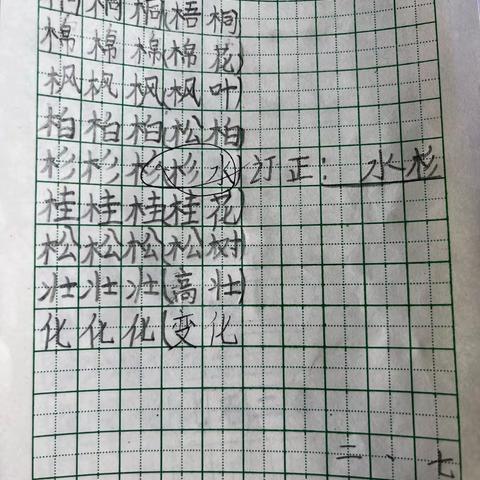 桐桐桐(梧桐
棉棉棉(棉花)
枫枫枫(枫叶)
柏柏柏(松柏)
杉杉杉(杉水)订正：水杉
桂桂桂(桂花)
松松松(松树)
壮壮壮(高壮)
化化化(变化
二、七